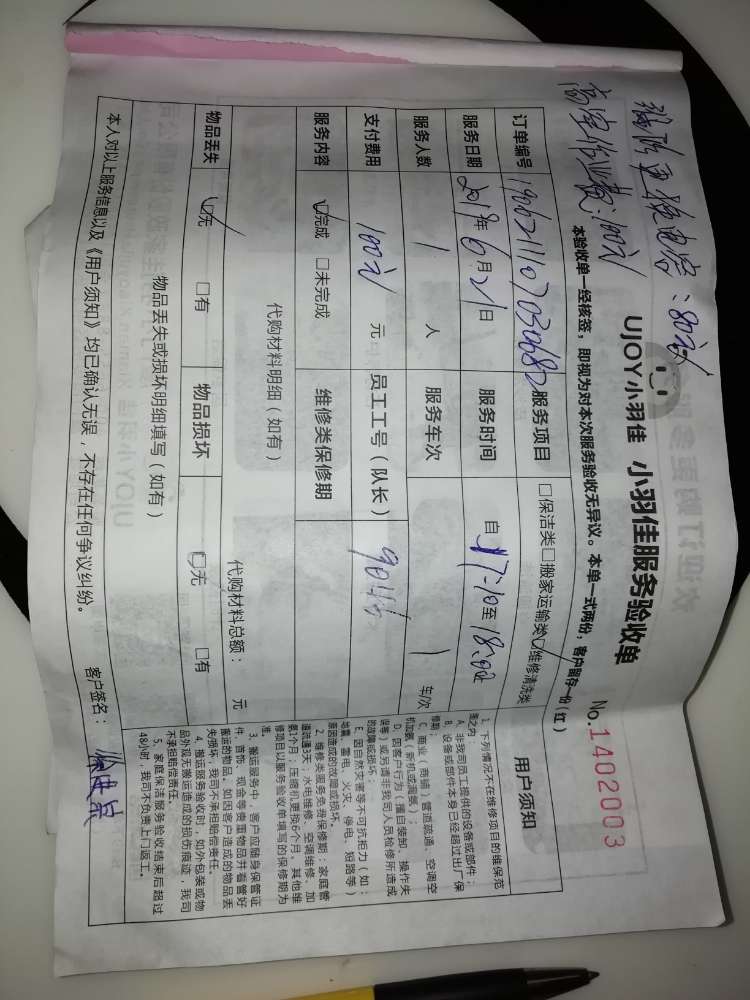 维修更换电容：80元
高空作业费：100元
UJOY小羽佳 小羽佳服务验收单
No.1402003
本验收单一经核签，即视为对本次服务验收无异议。本单一式两份，客户留存一份(红)
订单编号 190621107030682 服务项目 □保洁类□搬家运输类☑维修清洗类
服务日期 2019年6月21日 服务时间 自17:10至18:00
服务人数 1 人 服务车次 1 车/次
支付费用 100元 元 员工工号(队长) 90116
服务内容 ☑完成 □未完成 维修类保修期
代购材料明细(如有) 代购材料总额： 元
物品丢失 ☑无 □有 物品损坏 ☑无 □有
物品丢失或损坏明细填写(如有)
本人对以上服务信息以及《用户须知》均已确认无误，不存在任何争议纠纷。 客户签名：
用户须知
1、下列情况不在维修项目的维保范
围之内
A、非我司员工提供的设备或部件；
B、设备或部件本身已经超过出厂保
修期；
C、商业(商铺)管道疏通、空调空
机加氨(新机或漏氨)；
D、因客户行为(擅自装卸、操作失
误等)或另请非我司人员检修所造成
的故障或损坏；
E、因自然灾害等不可抗拒力(如：
地震、雷电、火灾、停电、短路等)
原因造成的故障或损坏。
2、维修类服务免费保修期：家庭管
道疏通3天；水电维修、空调维修、加
氨1个月；压缩机更换6个月。其他维
修项目以服务验收单填写的保修期为
准。
3、搬运服务中，客户应随身保管证
件、首饰、现金等贵重物品并看管好
搬运的物品，如因客户造成的物品丢
失/损坏，我司不承担赔偿责任。
4、搬运服务验收时，如外包装或物
品外观无搬运造成的损伤痕迹，我司
不承担赔偿责任
5、家庭保洁服务验收结束后超过
48小时，我司不负责上门返工。